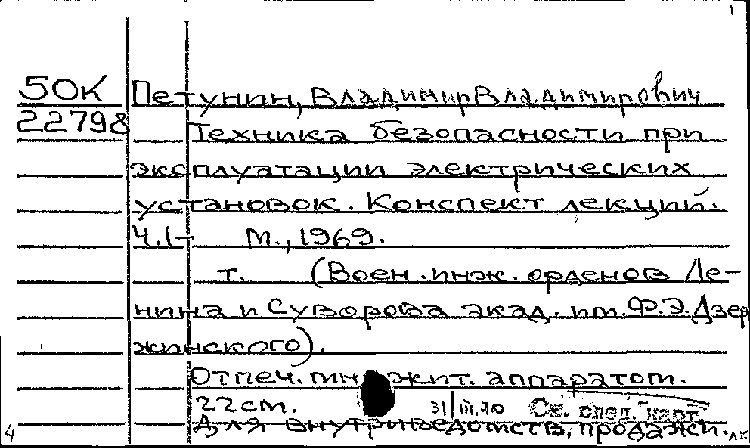 50К Петунин, Владимир Владимирович
22798
Техника безопасности при
эксплуатации электрических
установок. Конспект лекций.
Ч.1– М., 1969.
т. (Воен.-инж. орденов Ле-
нина и Суворова акад. им. Ф.Э.Дзер
жинского).
Отпеч. аппаратом.
22см. 31/III.70 См. след. карт.
4 Для внутриведомств. продажи.